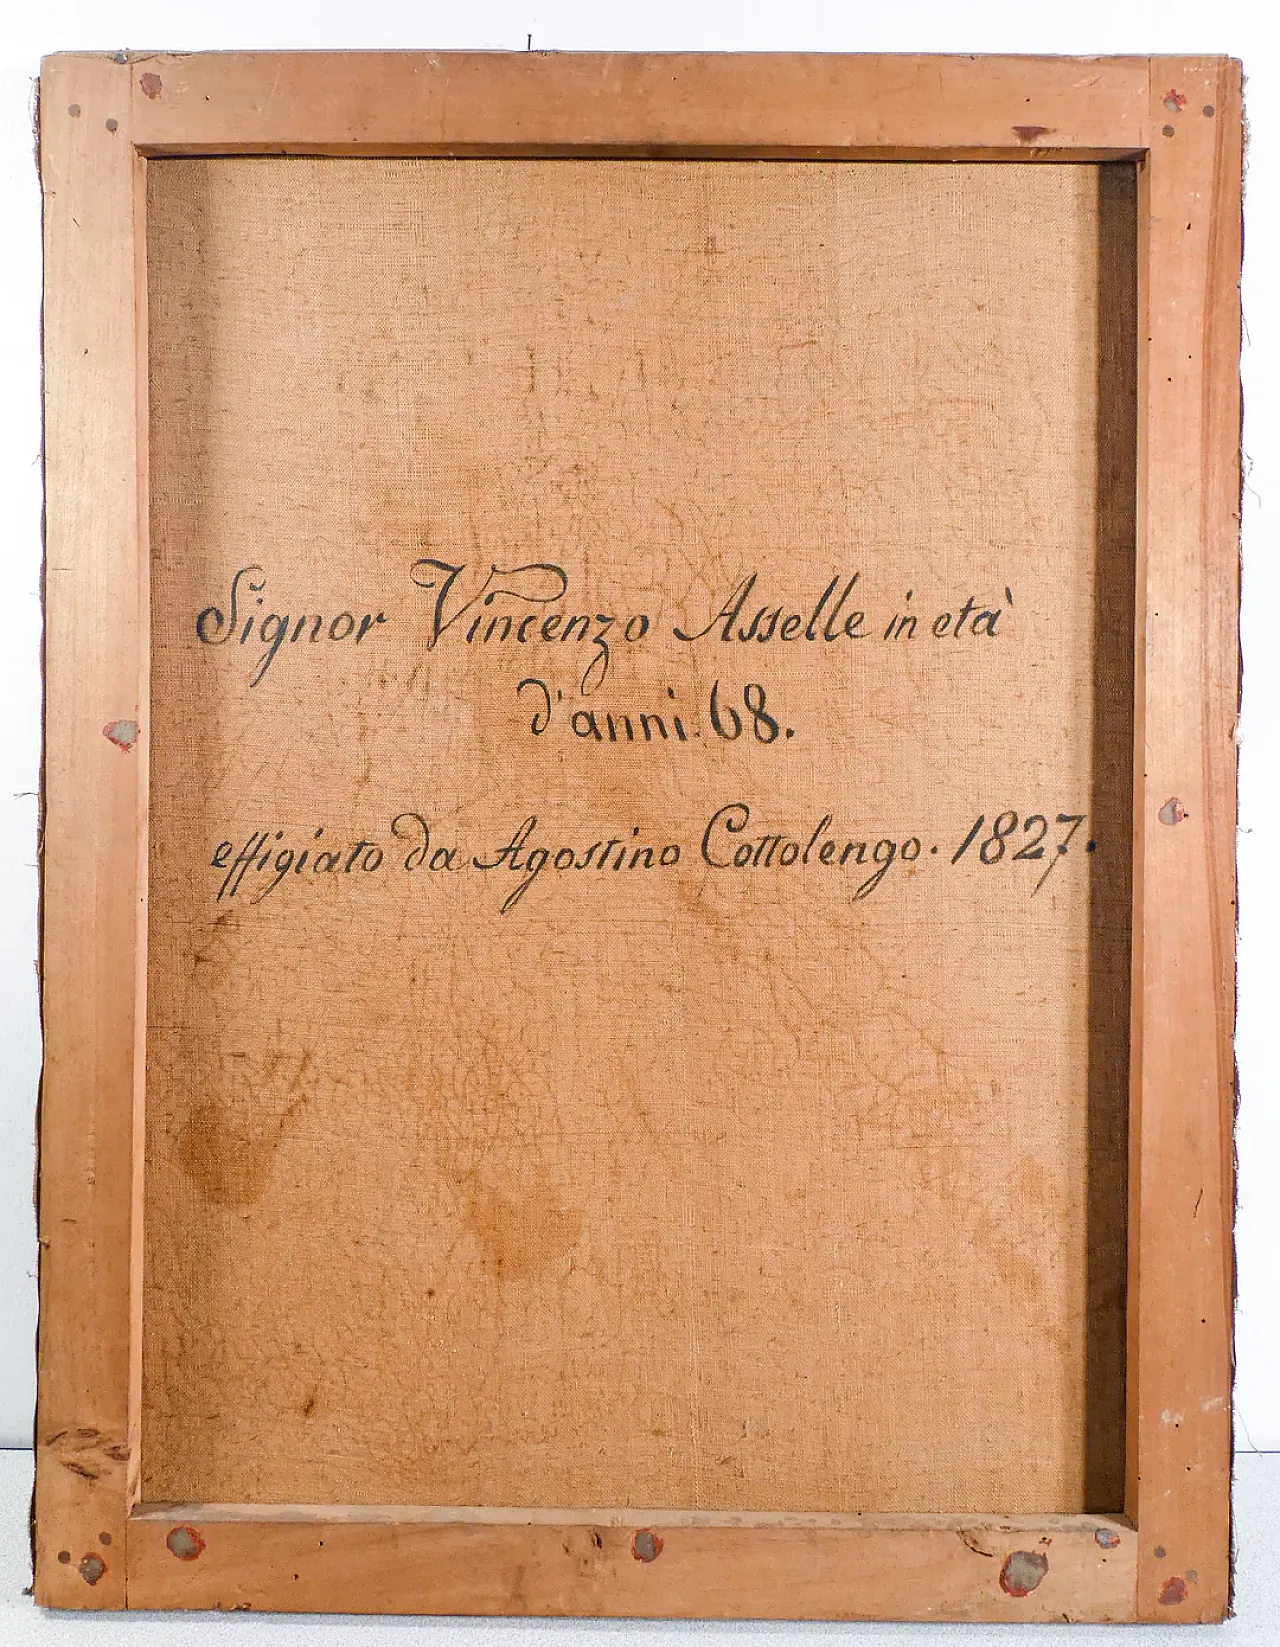 Signor Vincenzo Asselle in età
d'anni. 68.
effigiato da Agostino Cottolengo. 1827.